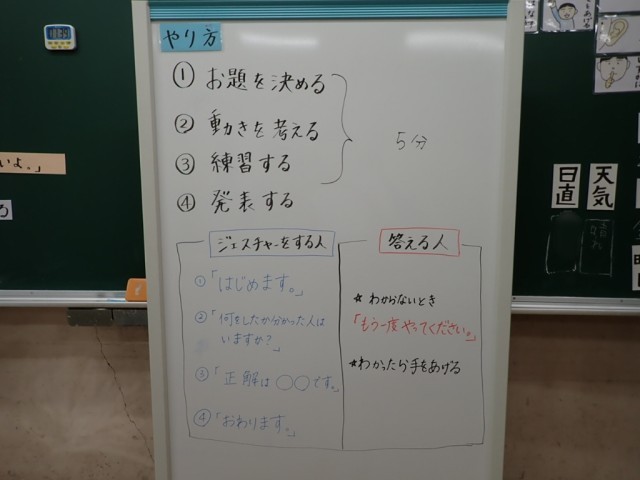 やり方
① お題を決める
② 動きを考える
③ 練習する
5分
④ 発表する
ジェスチャーをする人
①「はじめます。」
②「何をしたか分かった人は
いますか？」
③「正解は○○です。」
④「おわります。」
答える人
★わからないとき
「もう一度やってください。」
★わかったら手をあげる
いよ。」
日直
天気